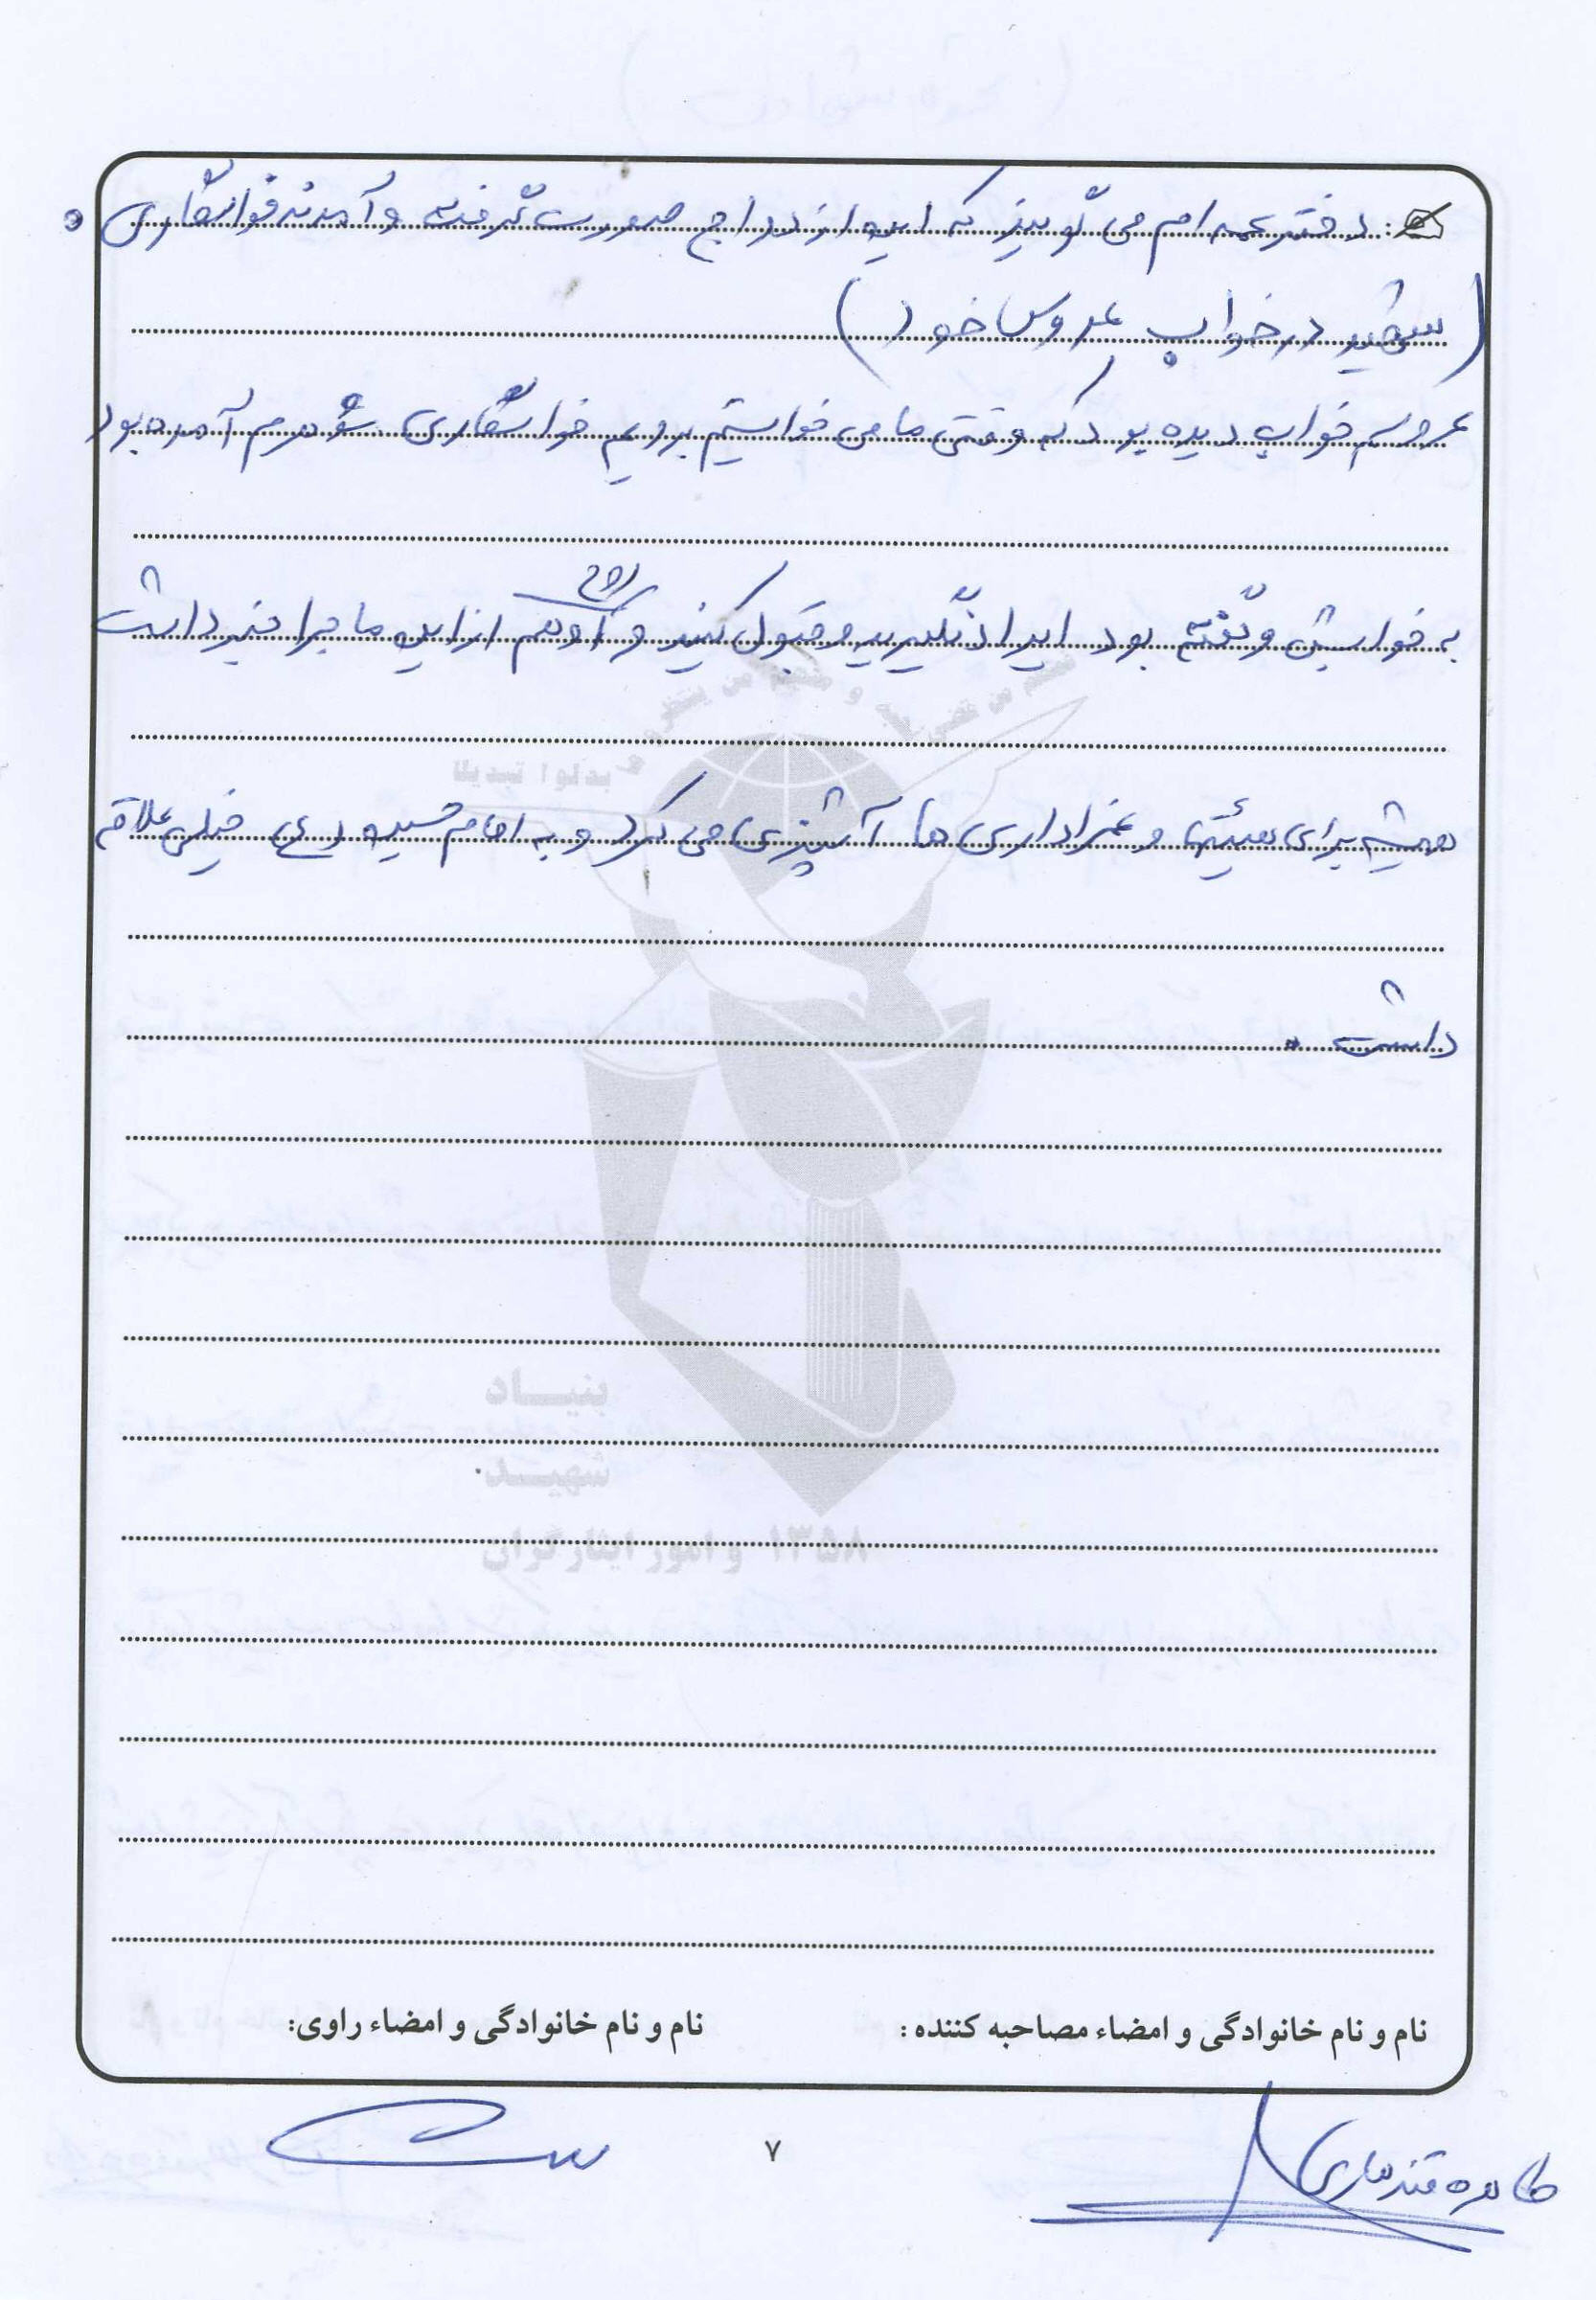 دختر عمه ام می گویند که این ازدواج صورت گرفت و آمدند خواستگاری .
(شهید در خواب عروس خود)
عروسم خواب دیده بود که وقتی ما می خواستیم برویم خواستگاری شوهرم آمده بود
به خوابش و گفته بود ایراد نگیرید و قبول کنید و او هم از این ماجرا خبر داشت
همیشه برای هیئتها و عزاداری ها آشپزی می کرد و به امام حسین (ع) خیلی علاقه
داشت .
بنیاد
شهید
و امور ایثارگران ۱۳۵۸
نام و نام خانوادگی و امضاء مصاحبه کننده :
نام و نام خانوادگی و امضاء راوی:
طاهره قندهاری
۷